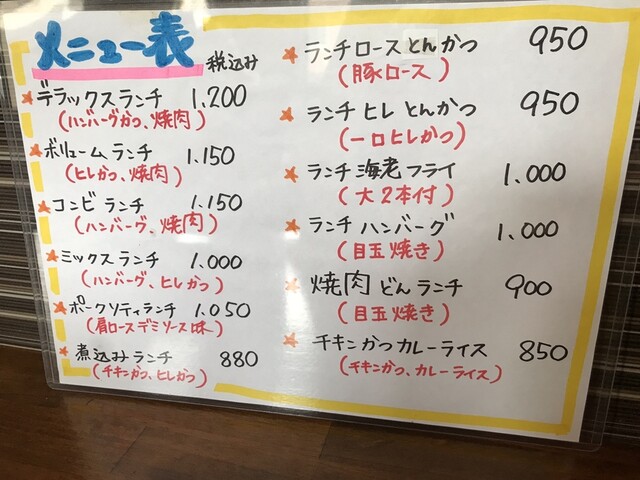 メニュー表 税込み
デラックスランチ 1.200
(ハンバーグかつ、焼肉)
ボリュームランチ 1.150
(ヒレかつ、焼肉)
コンビランチ 1.150
(ハンバーグ、焼肉)
ミックスランチ 1.000
(ハンバーグ、ヒレかつ)
ポークソティランチ 1.050
(肩ロースデミソース味)
煮込みランチ 880
(チキンかつ、ヒレかつ)
ランチロースとんかつ 950
(豚ロース)
ランチ ヒレ とんかつ 950
(一口ヒレかつ)
ランチ 海老フライ 1.000
(大2本付)
ランチ ハンバーグ 1.000
(目玉焼き)
焼肉どんランチ 900
(目玉焼き)
チキンかつカレーライス 850
(チキンかつ、カレーライス)